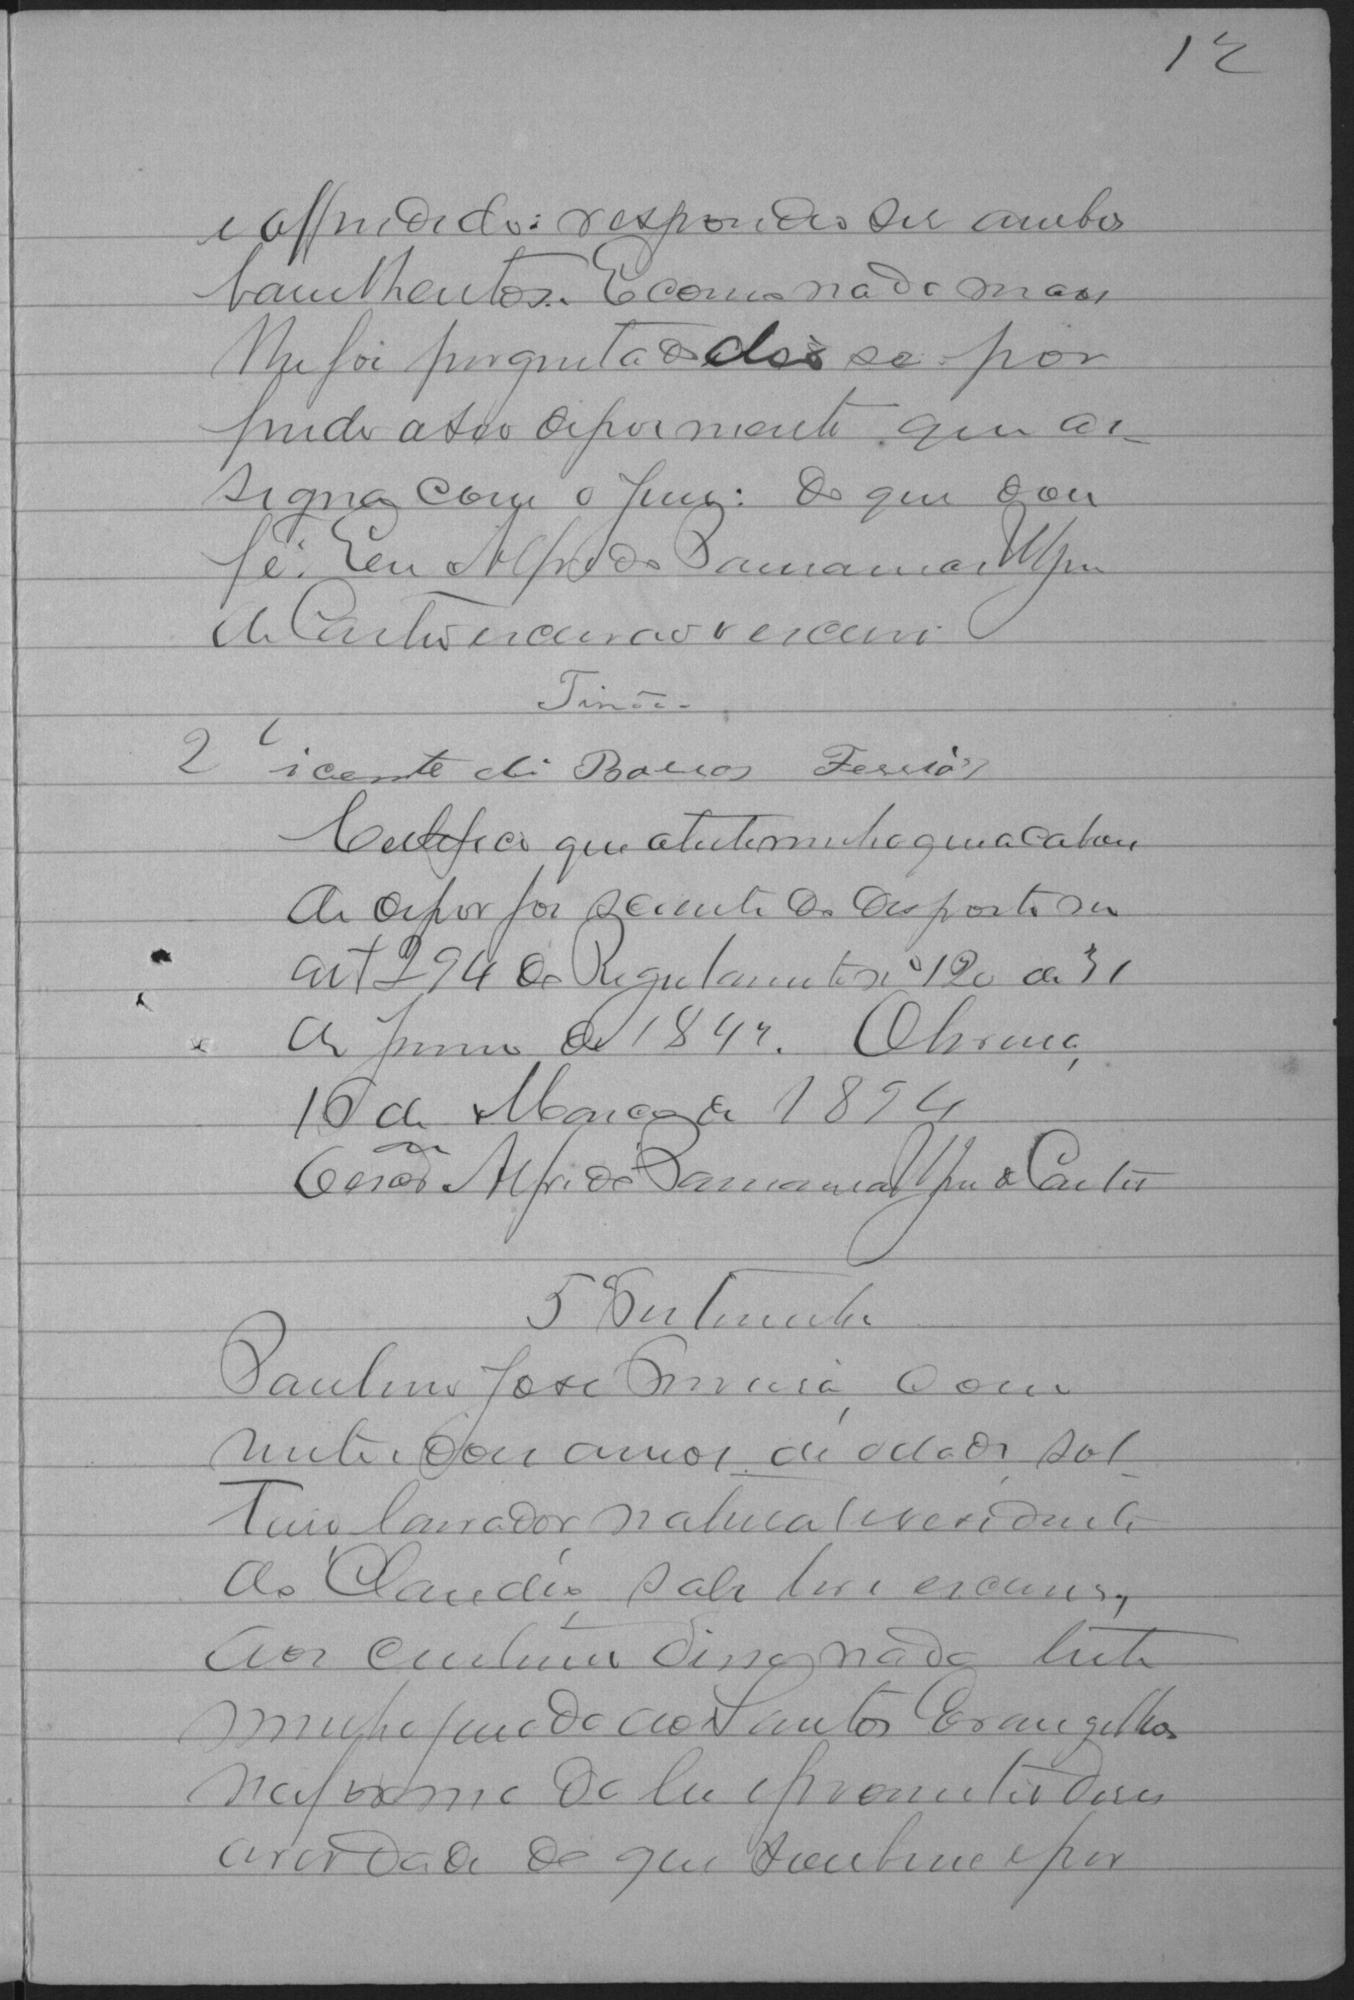 12
e offendido: respondeu ser ambos
barulhentos. E como nada mais
lhe foi perguntado deo se por
findo a seu depoimento que as-
signa com o Juiz: do que dou
fé. Eu Alfredo
de Castro escrivão escrevi
Tinôco
Vicente de Barros Ferrás
Certifico que a testemunha que acabou
de depor foi sciente do disposto no
art 294 do Regulamento nº 120 de 31
de Janeiro de 1842.
16 de Março de 1894
O escrvão Alfredo de Castro
5ª Testemunha
Paulino José com
vinte e dous annos de edade, sol-
teiro, lavrador, natural e residente
do Claudio, sabe ler e escrever,
aos costumes disse nada teste
munha jurada aos Santos Evangelhos
na forma da lei e prometteu dizer
a verdade do que soubesse e por